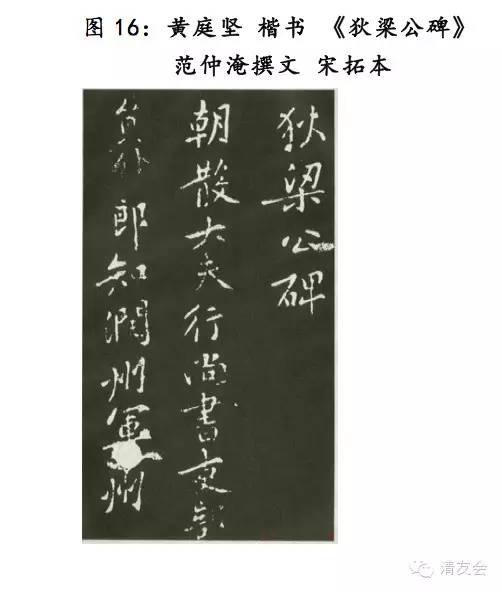 图 16：黄庭坚 楷书 《狄梁公碑》
范仲淹撰文 宋拓本
狄梁公碑
朝散大夫行尚書吏部
員外郎知潤州軍州
清友会